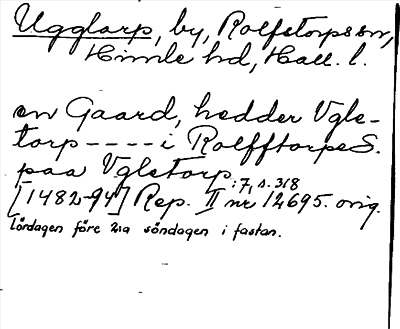 Ugglarp, by, Rolfstorps sn,
Himle hd, Hall. l.
en Gaard, hedder Vgle-
torp - - - - i Rolfftorpe S.
paa Vgletorp
: 7, s. 318
[1482-94] Rep. II nr 12695. orig.
Lördagen före 2:a söndagen i fastan.